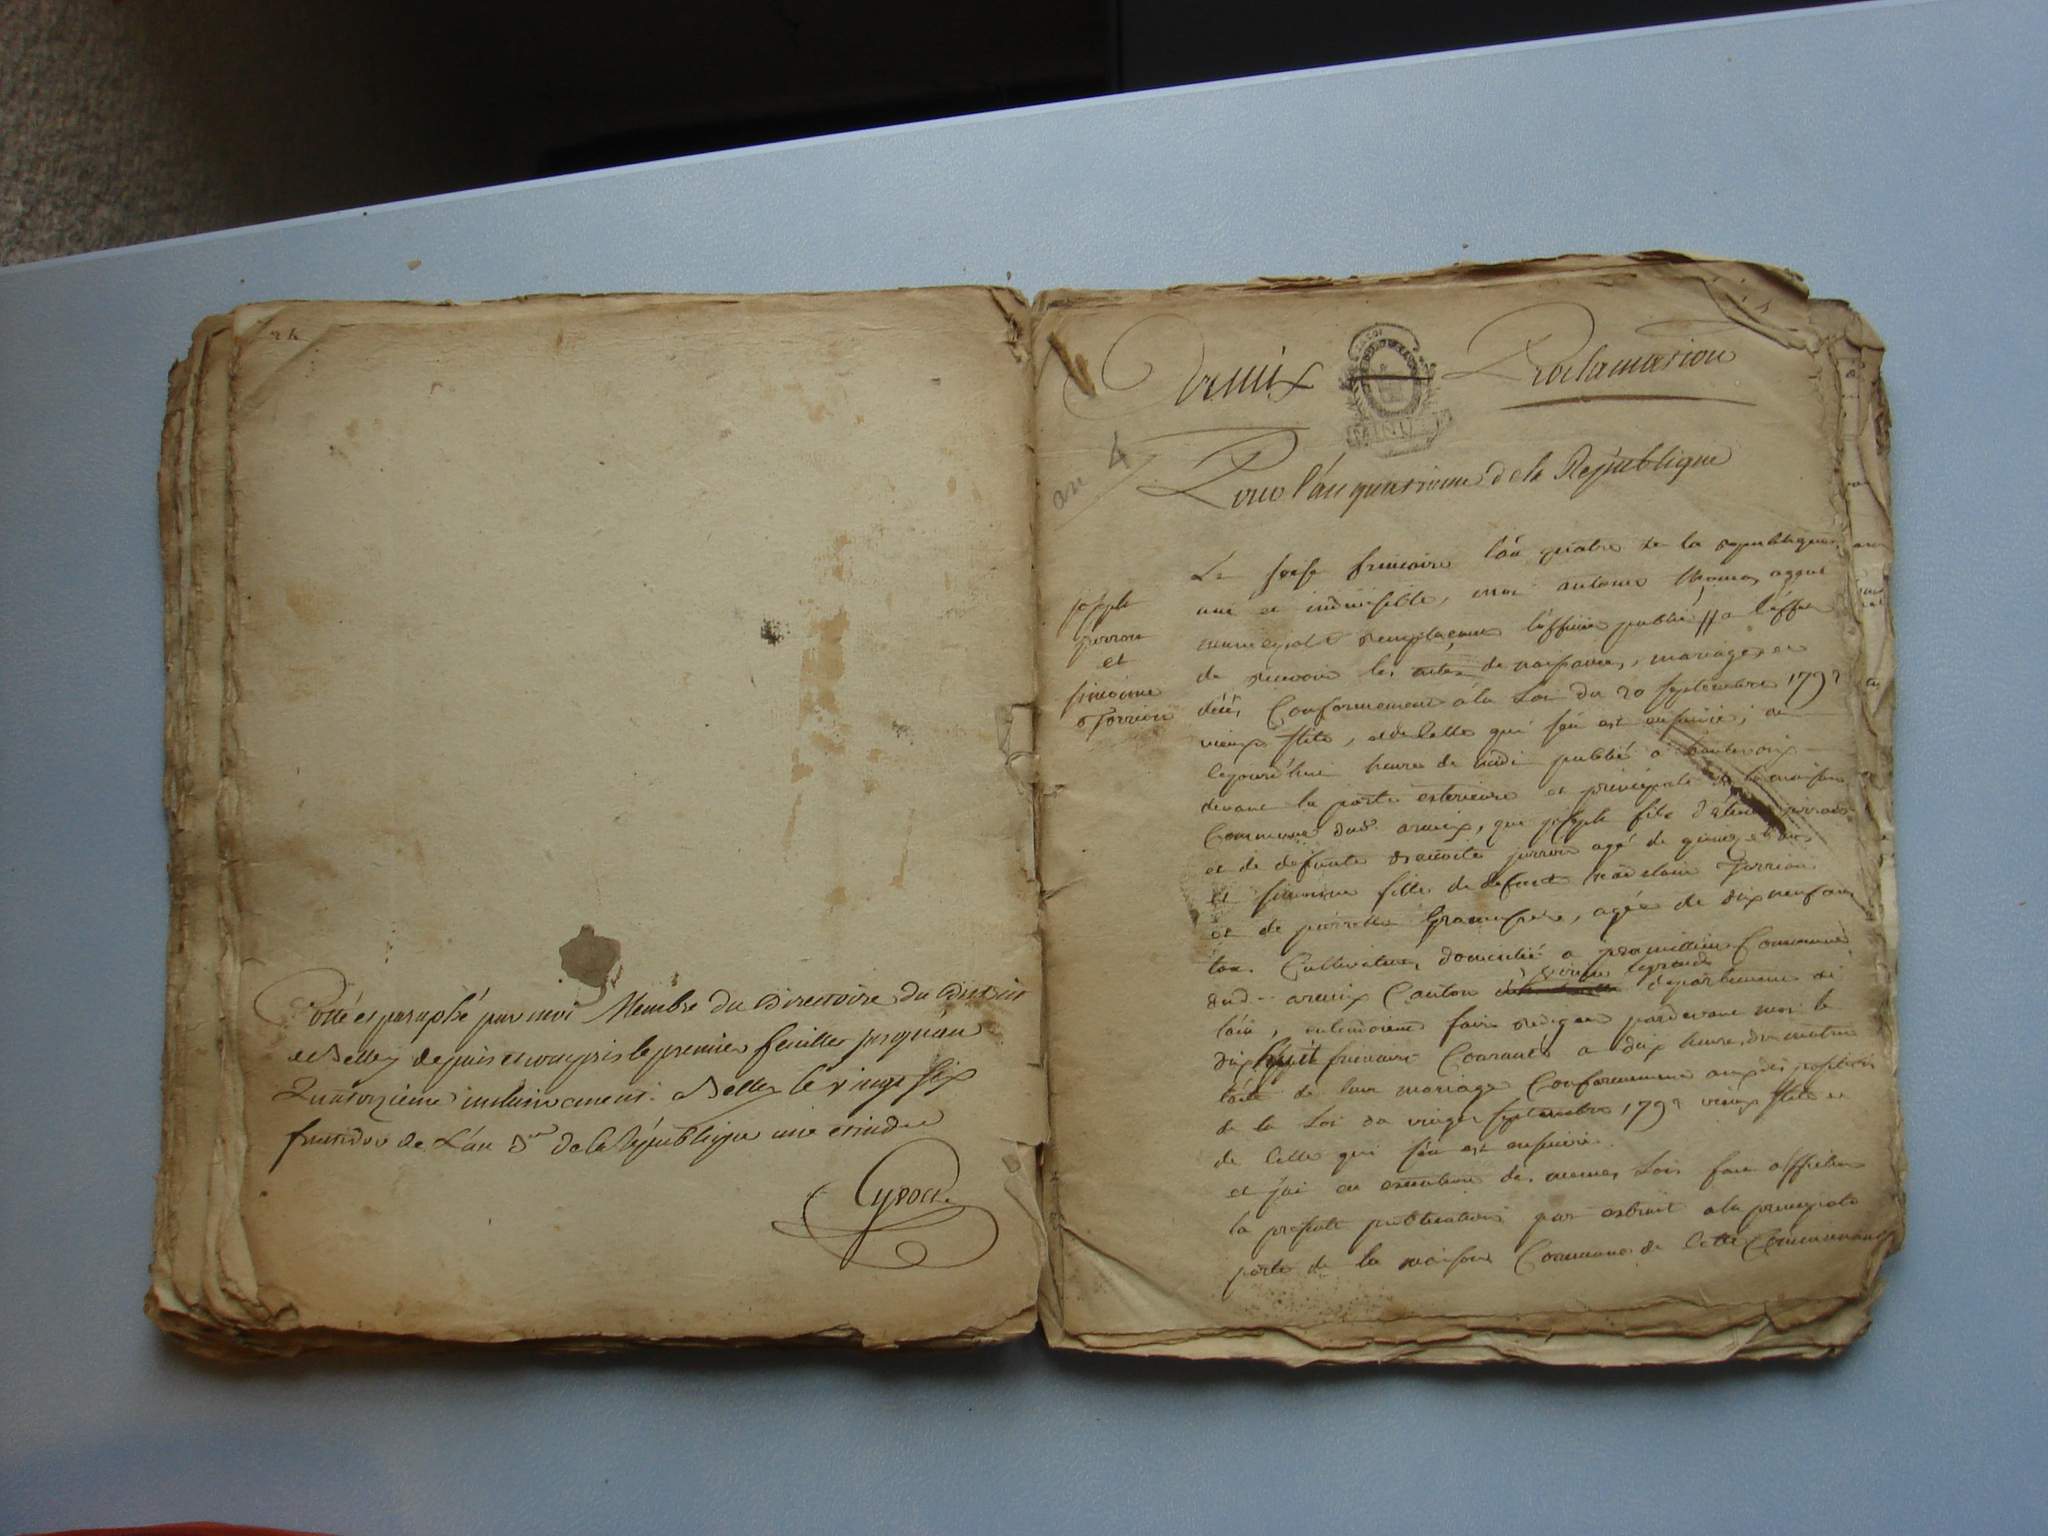 Cotté et paraphé par moi Membre du Directoire du District
de Belley depuis et compris le premier feuillet jusqu'au
Quatorzième inclusivement. à Belley le vingt six
frimaire de L'an 3me de la République une et indi
Cyvoct
Armix Proclamation
an 4
Pour l'an quatrieme de la République
joseph
et
Le seize frimaire l'an quatre de la republique
une et indivisible, moi antoine thomas agent
municipal remplaçant l'officier public à l'effet
de recevoir les actes de naissances, mariages et
décès, Conformement à la Loi du 20 septembre 1792
vieux stile, et de celle qui s'en est ensuivie; ai
cejourd'hui heure de midi publié à hautevoix
devant la porte exterieure et principale de la maison
Commune dud. armix, que joseph fils
et de defunte agé de
et fille de defunt
et de pierrette agée de dix neuf ans
tous Cultivateurs, domicilié a premillieu Commune
dud. armix Canton de virieu legrand departement de
l'ain, entendoient faire rediger pardevant moi le
dix huit frimaire Courant a dix heures du matin
l'acte de leur mariage Conformement aux dispositions
de la Loi du vingt septembre 1792 vieux stile et
de Celle qui s'en est ensuivie.
et j'ai en execution des memes Lois fait afficher
la presente publication par extrait a la principale
porte de la maison Commune de Cette Commune